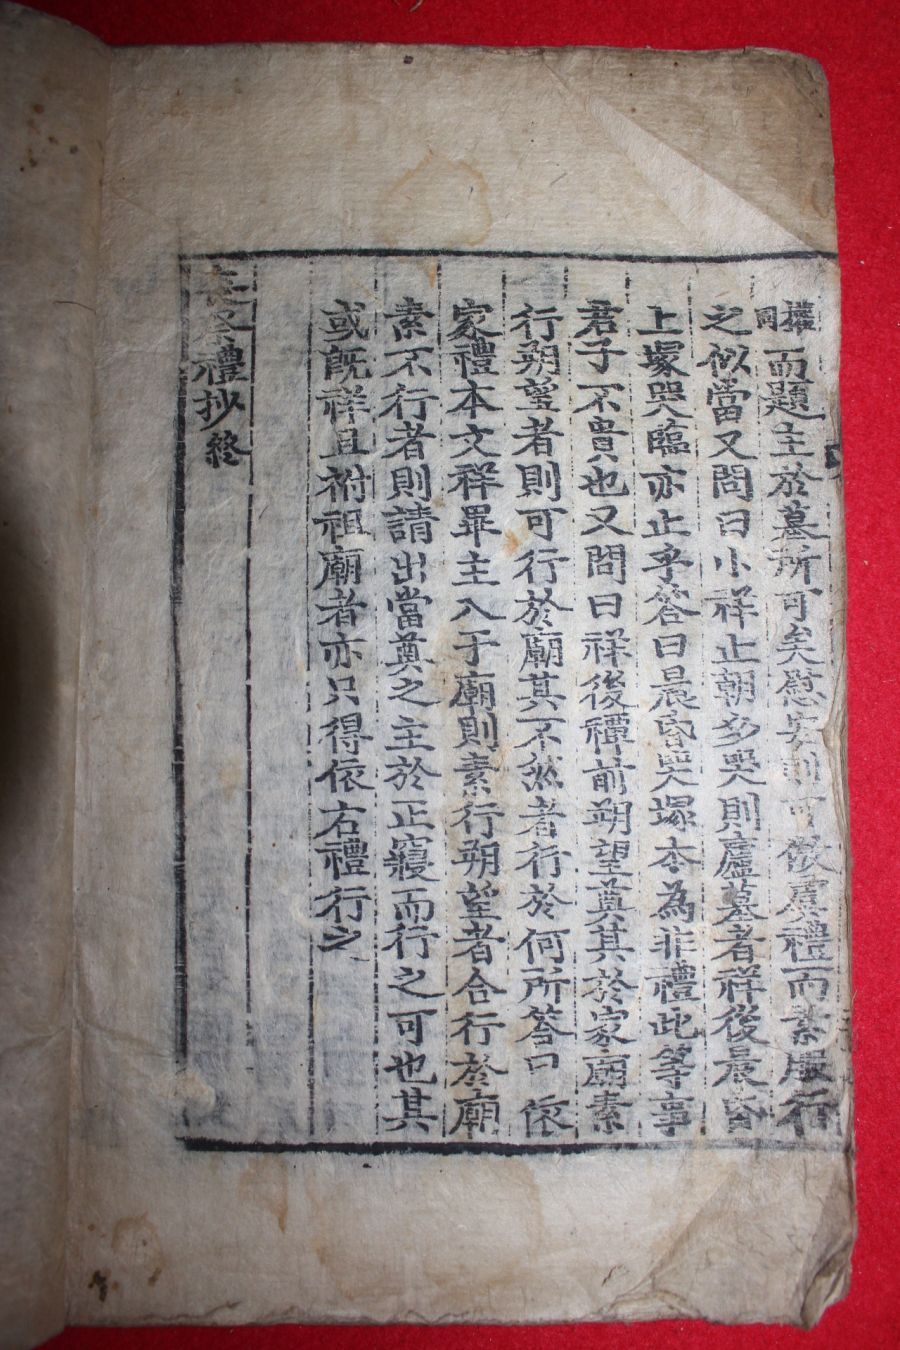 權同而題主於墓所可矣慰安則可倣虞禮而素服行
之似當又問曰小祥止朝夕哭則廬墓者祥後晨昏
上塚哭臨亦止乎答曰晨昏哭塚本為非禮此等事
君子不貴也又問曰祥後禫前朔望奠其於家廟素
行朔望者則可行於廟其不然者行於何所答曰依
家禮本文祥畢主入于廟則素行朔望者合行於廟
素不行者則請出當奠之主於正寢而行之可也其
或旣祥且祔祖廟者亦只得依右禮行之
喪祭禮抄終